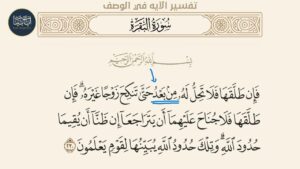 تفسير الآية في الوصف
سُورَةُ البَقَرَةِ
بِسْمِ اللَّهِ الرَّحْمَٰنِ الرَّحِيمِ
فَإِن طَلَّقَهَا فَلَا تَحِلُّ لَهُۥ مِنۢ بَعْدُ حَتَّىٰ تَنكِحَ زَوْجًا غَيْرَهُۥۗ فَإِن
طَلَّقَهَا فَلَا جُنَاحَ عَلَيْهِمَآ أَن يَتَرَاجَعَآ إِن ظَنَّآ أَن يُقِيمَا
حُدُودَ ٱللَّهِۗ وَتِلْكَ حُدُودُ ٱللَّهِ يُبَيِّنُهَا لِقَوْمٍ يَعْلَمُونَ ٢٣٠